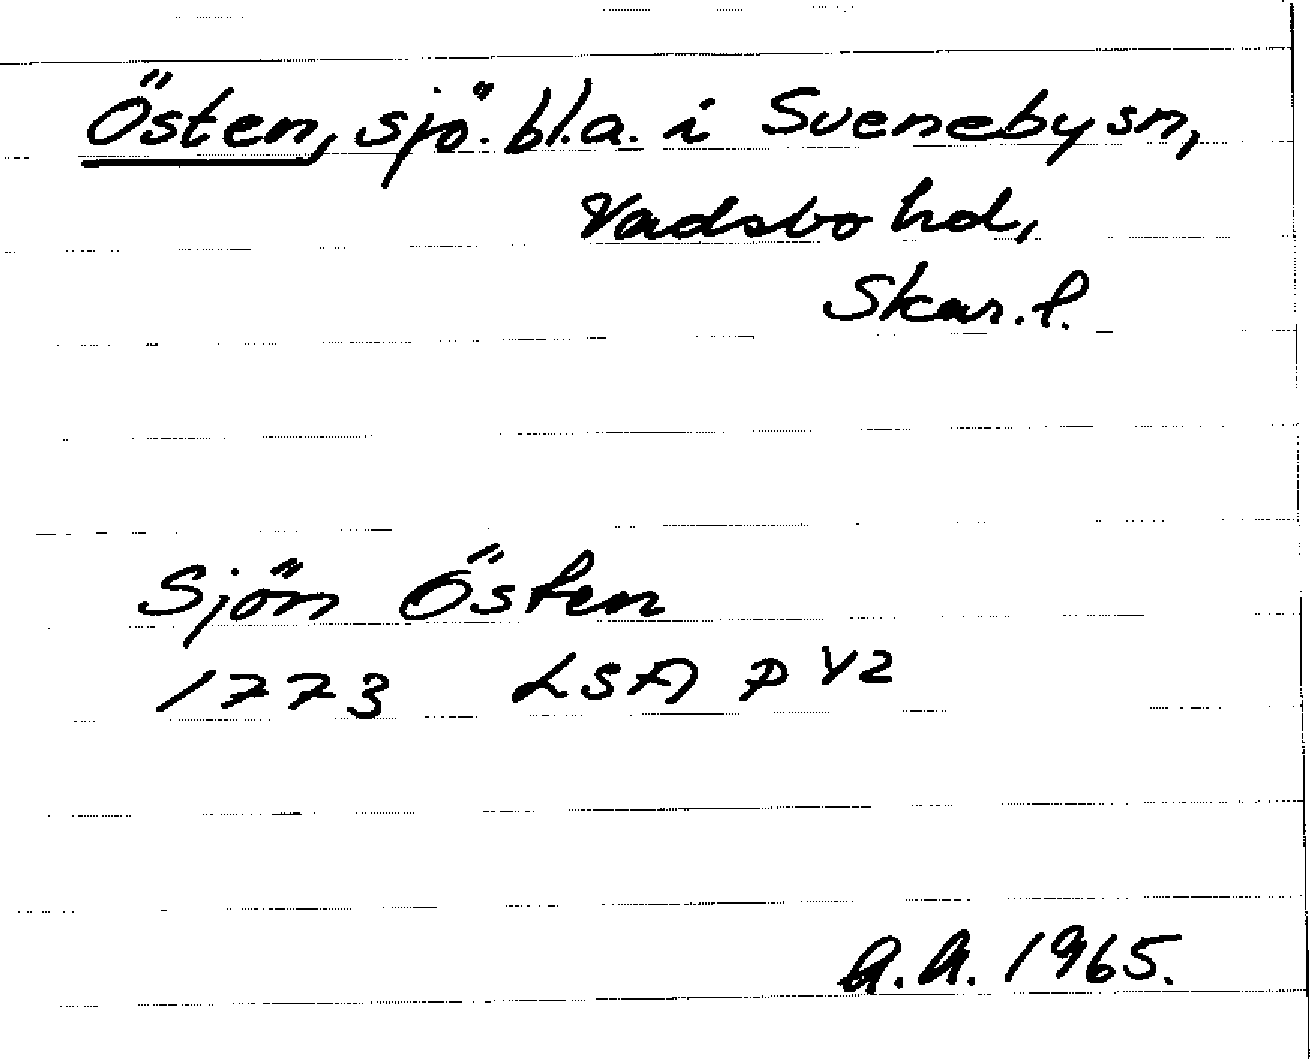 Östen, sjö. bl.a. i Svenebysn,
Vadsbo hd,
Skar. l.
Sjön Östen
1773 LSA P 42
A.A. 1965.